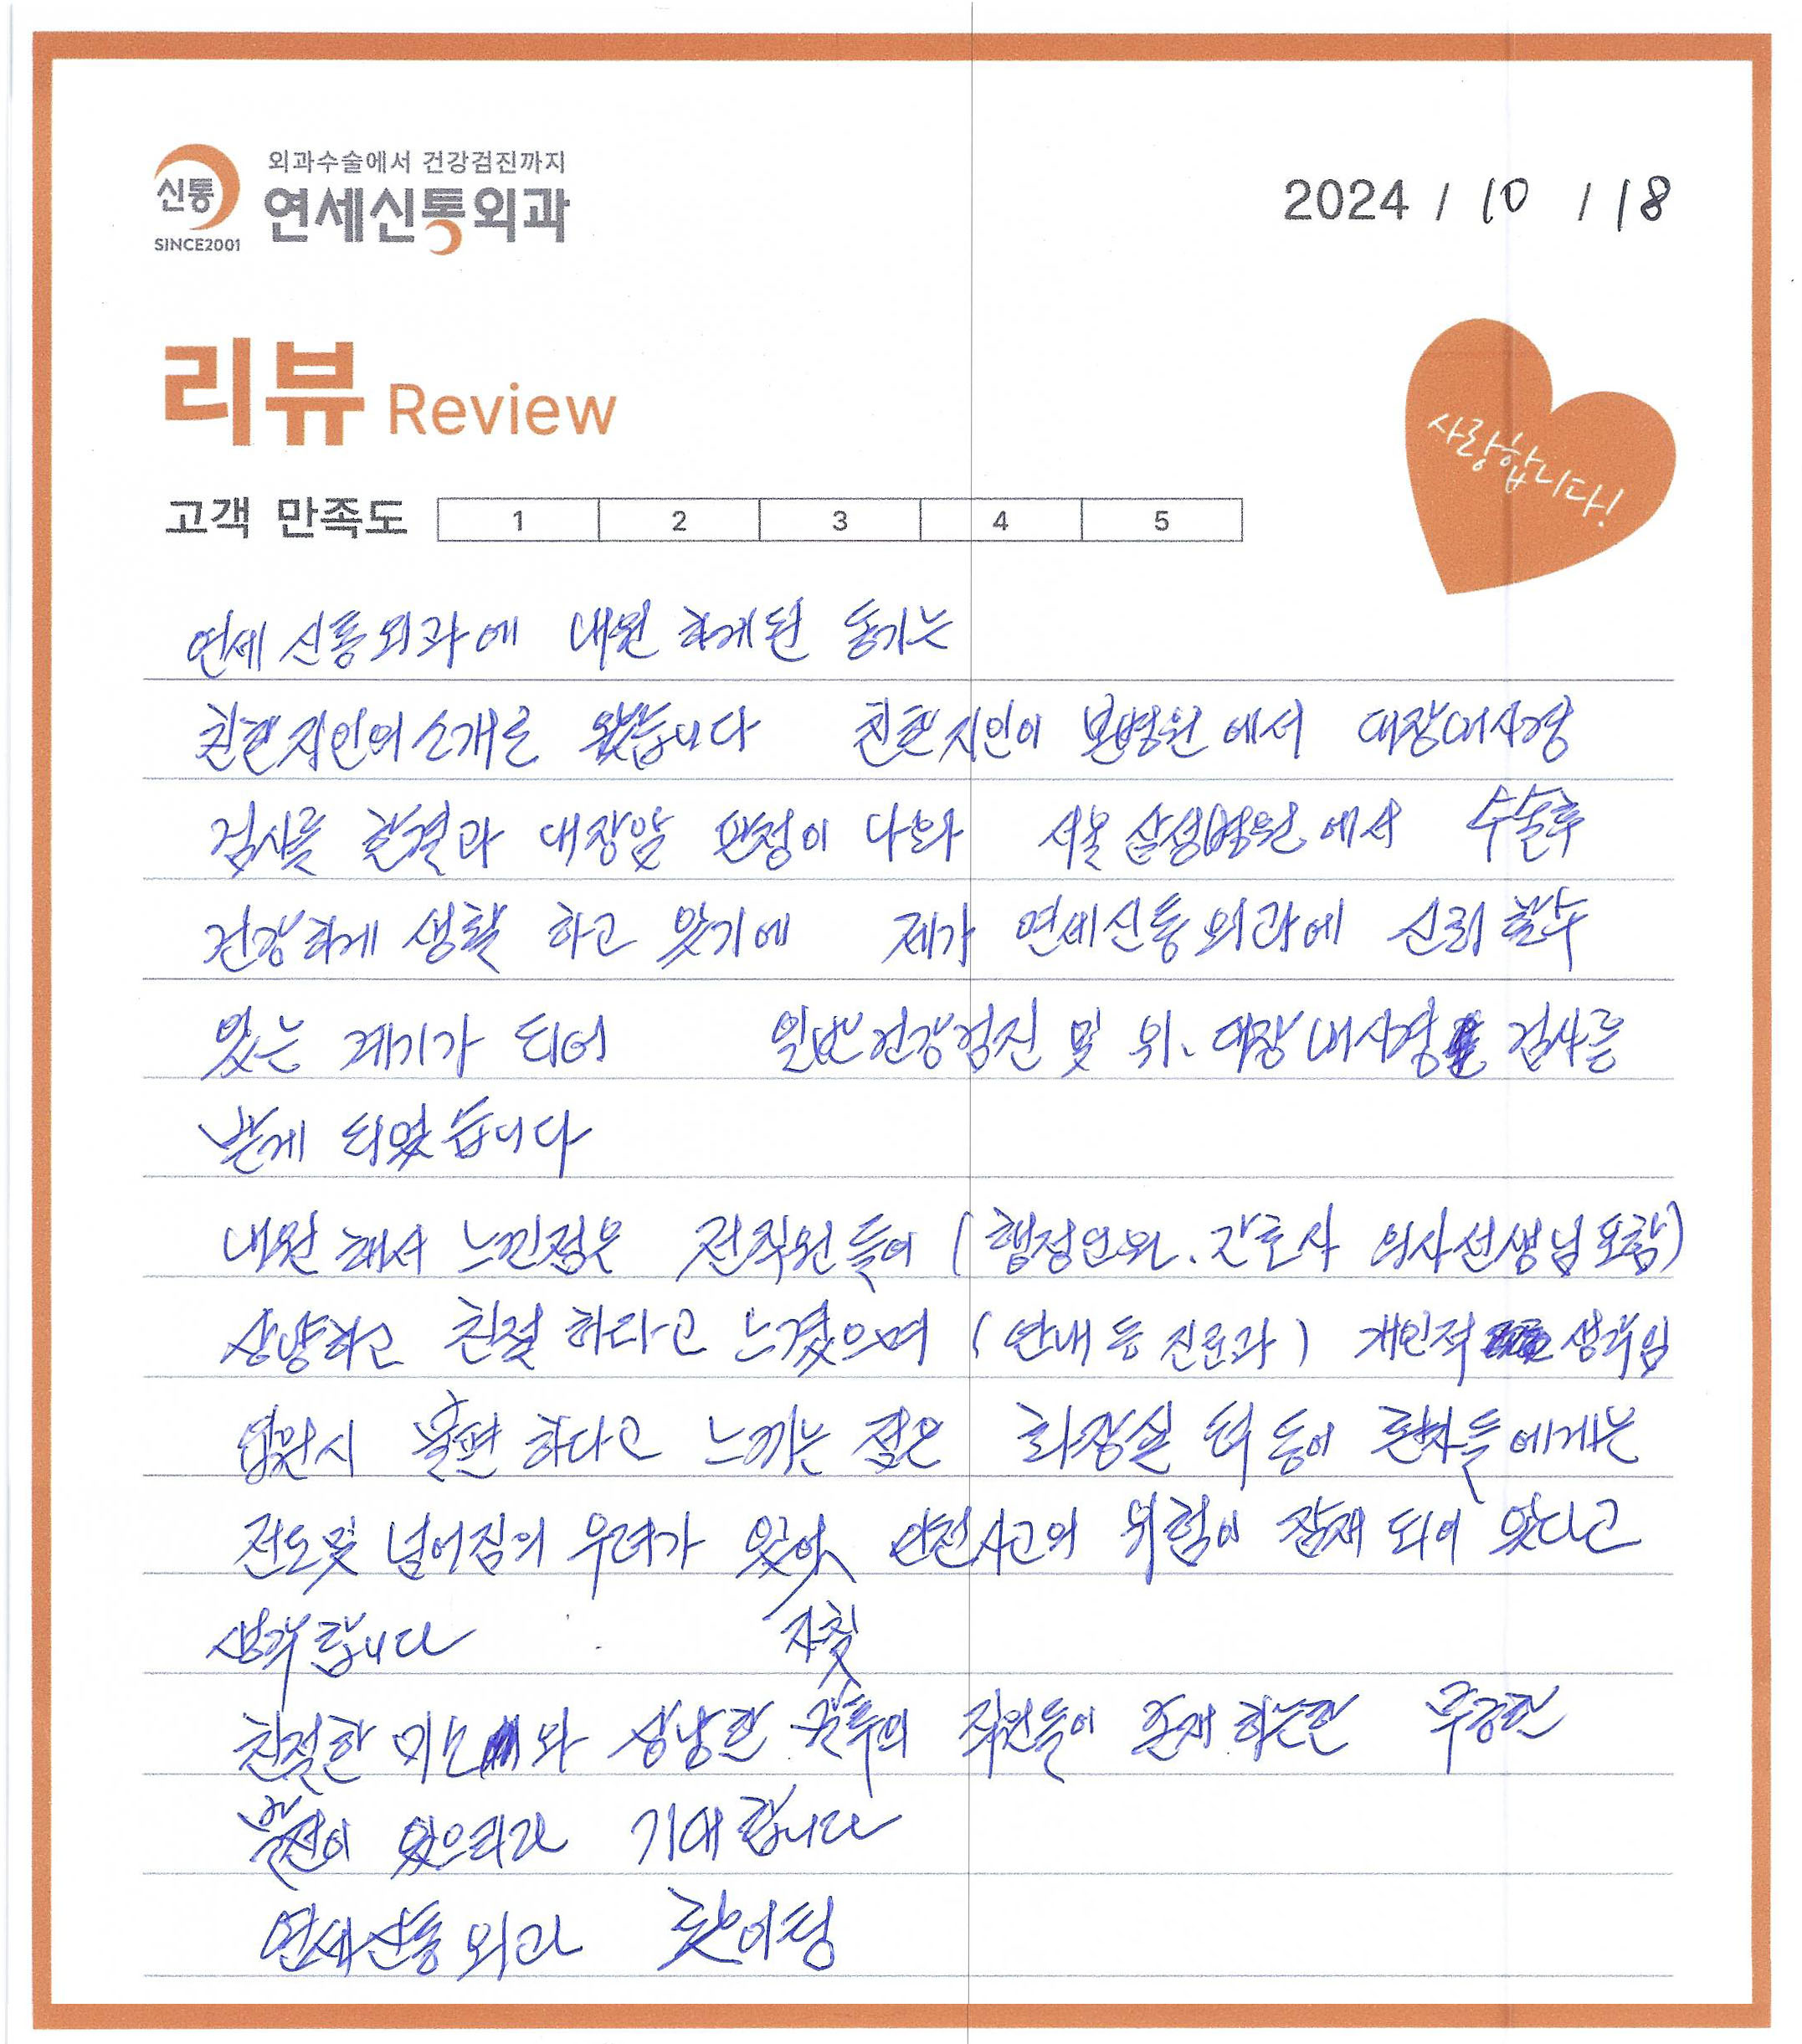 신통
SINCE2001
외과수술에서 건강검진까지
연세신통외과
2024 / 10 / 18
리뷰 Review
사랑합니다!
고객 만족도 1 2 3 4 5
연세 신통외과에 내원 하게된 동기는
친한 지인의 소개로 왔습니다 친한 지인이 본병원에서 대장내시경
검사를 한결과 대장암 판정이 나와 서울 삼성병원에서 수술후
건강하게 생활 하고 있기에 제가 연세신통외과에 신뢰 할수
있는 계기가 되어 일반건강검진 및 위、대장내시경 검사를
받게 되였습니다
내원 해서 느낀점은 전직원들이 (행정인원、간호사 의사선생님 포함)
상냥하고 친절 하다라고 느겼으며 (안내 등 진료과) 개인적 생각임
입원시 불편 하다고 느끼는 점은 화장실 턱 등이 환자들에게는
전도및 넘어짐의 우려가 있어 자칫 안전사고의 위험이 잠재 되어 있다고
생각 합니다
친절한 미소와 상냥한 말투의 직원들이 존재 하는한 무궁한
발전이 있으리라 기대 합니다
연세신통외과 홧이팅